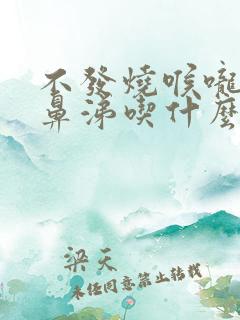 不發燒喉嚨
鼻涕喫什麼
梁天
未经同意禁止转载